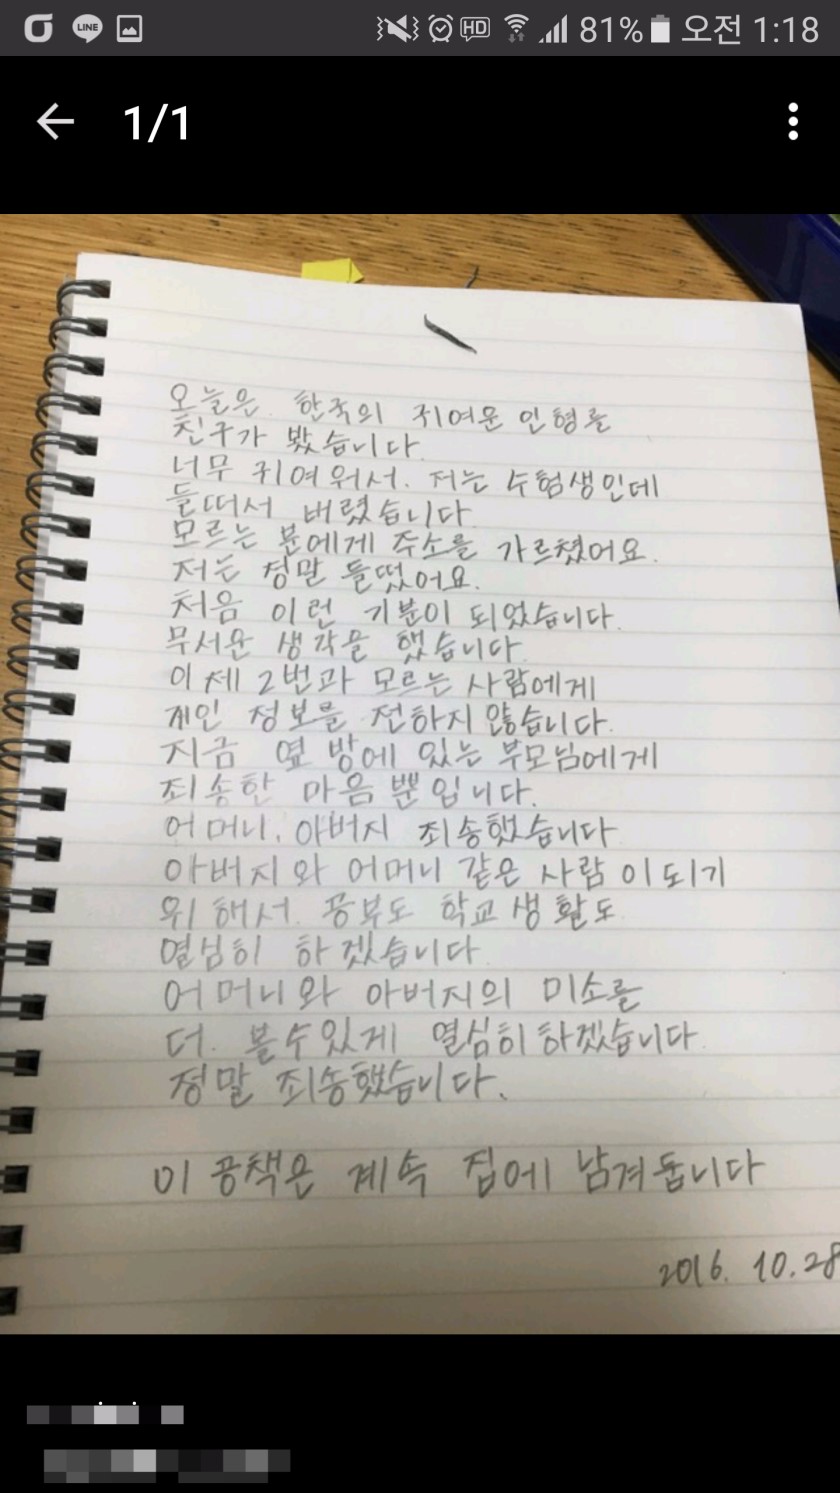 LINE
HD
81%
오전 1:18
1/1
오늘은 한국의 귀여운 인형를
친구가 봤습니다.
너무 귀여워서. 저는 수험생인데
들떠서 버렸습니다.
모르는 분에게 주소를 가르쳤어요.
저는 정말 들떴어요.
처음 이런 기분이 되었습니다.
무서운 생각을 했습니다.
이제 2번과 모르는 사람에게
개인 정보를 전하지 않습니다.
지금 옆 방에 있는 부모님에게
죄송한 마음뿐입니다.
어머니. 아버지 죄송했습니다
아버지와 어머니 같은 사람이되기
위해서. 공부도 학교생활도
열심히 하겠습니다
어머니와 아버지의 미소를
더. 볼수있게 열심히하겠습니다.
정말 죄송했습니다.
이 공책은 계속 집에 남겨둡니다
2016. 10.28